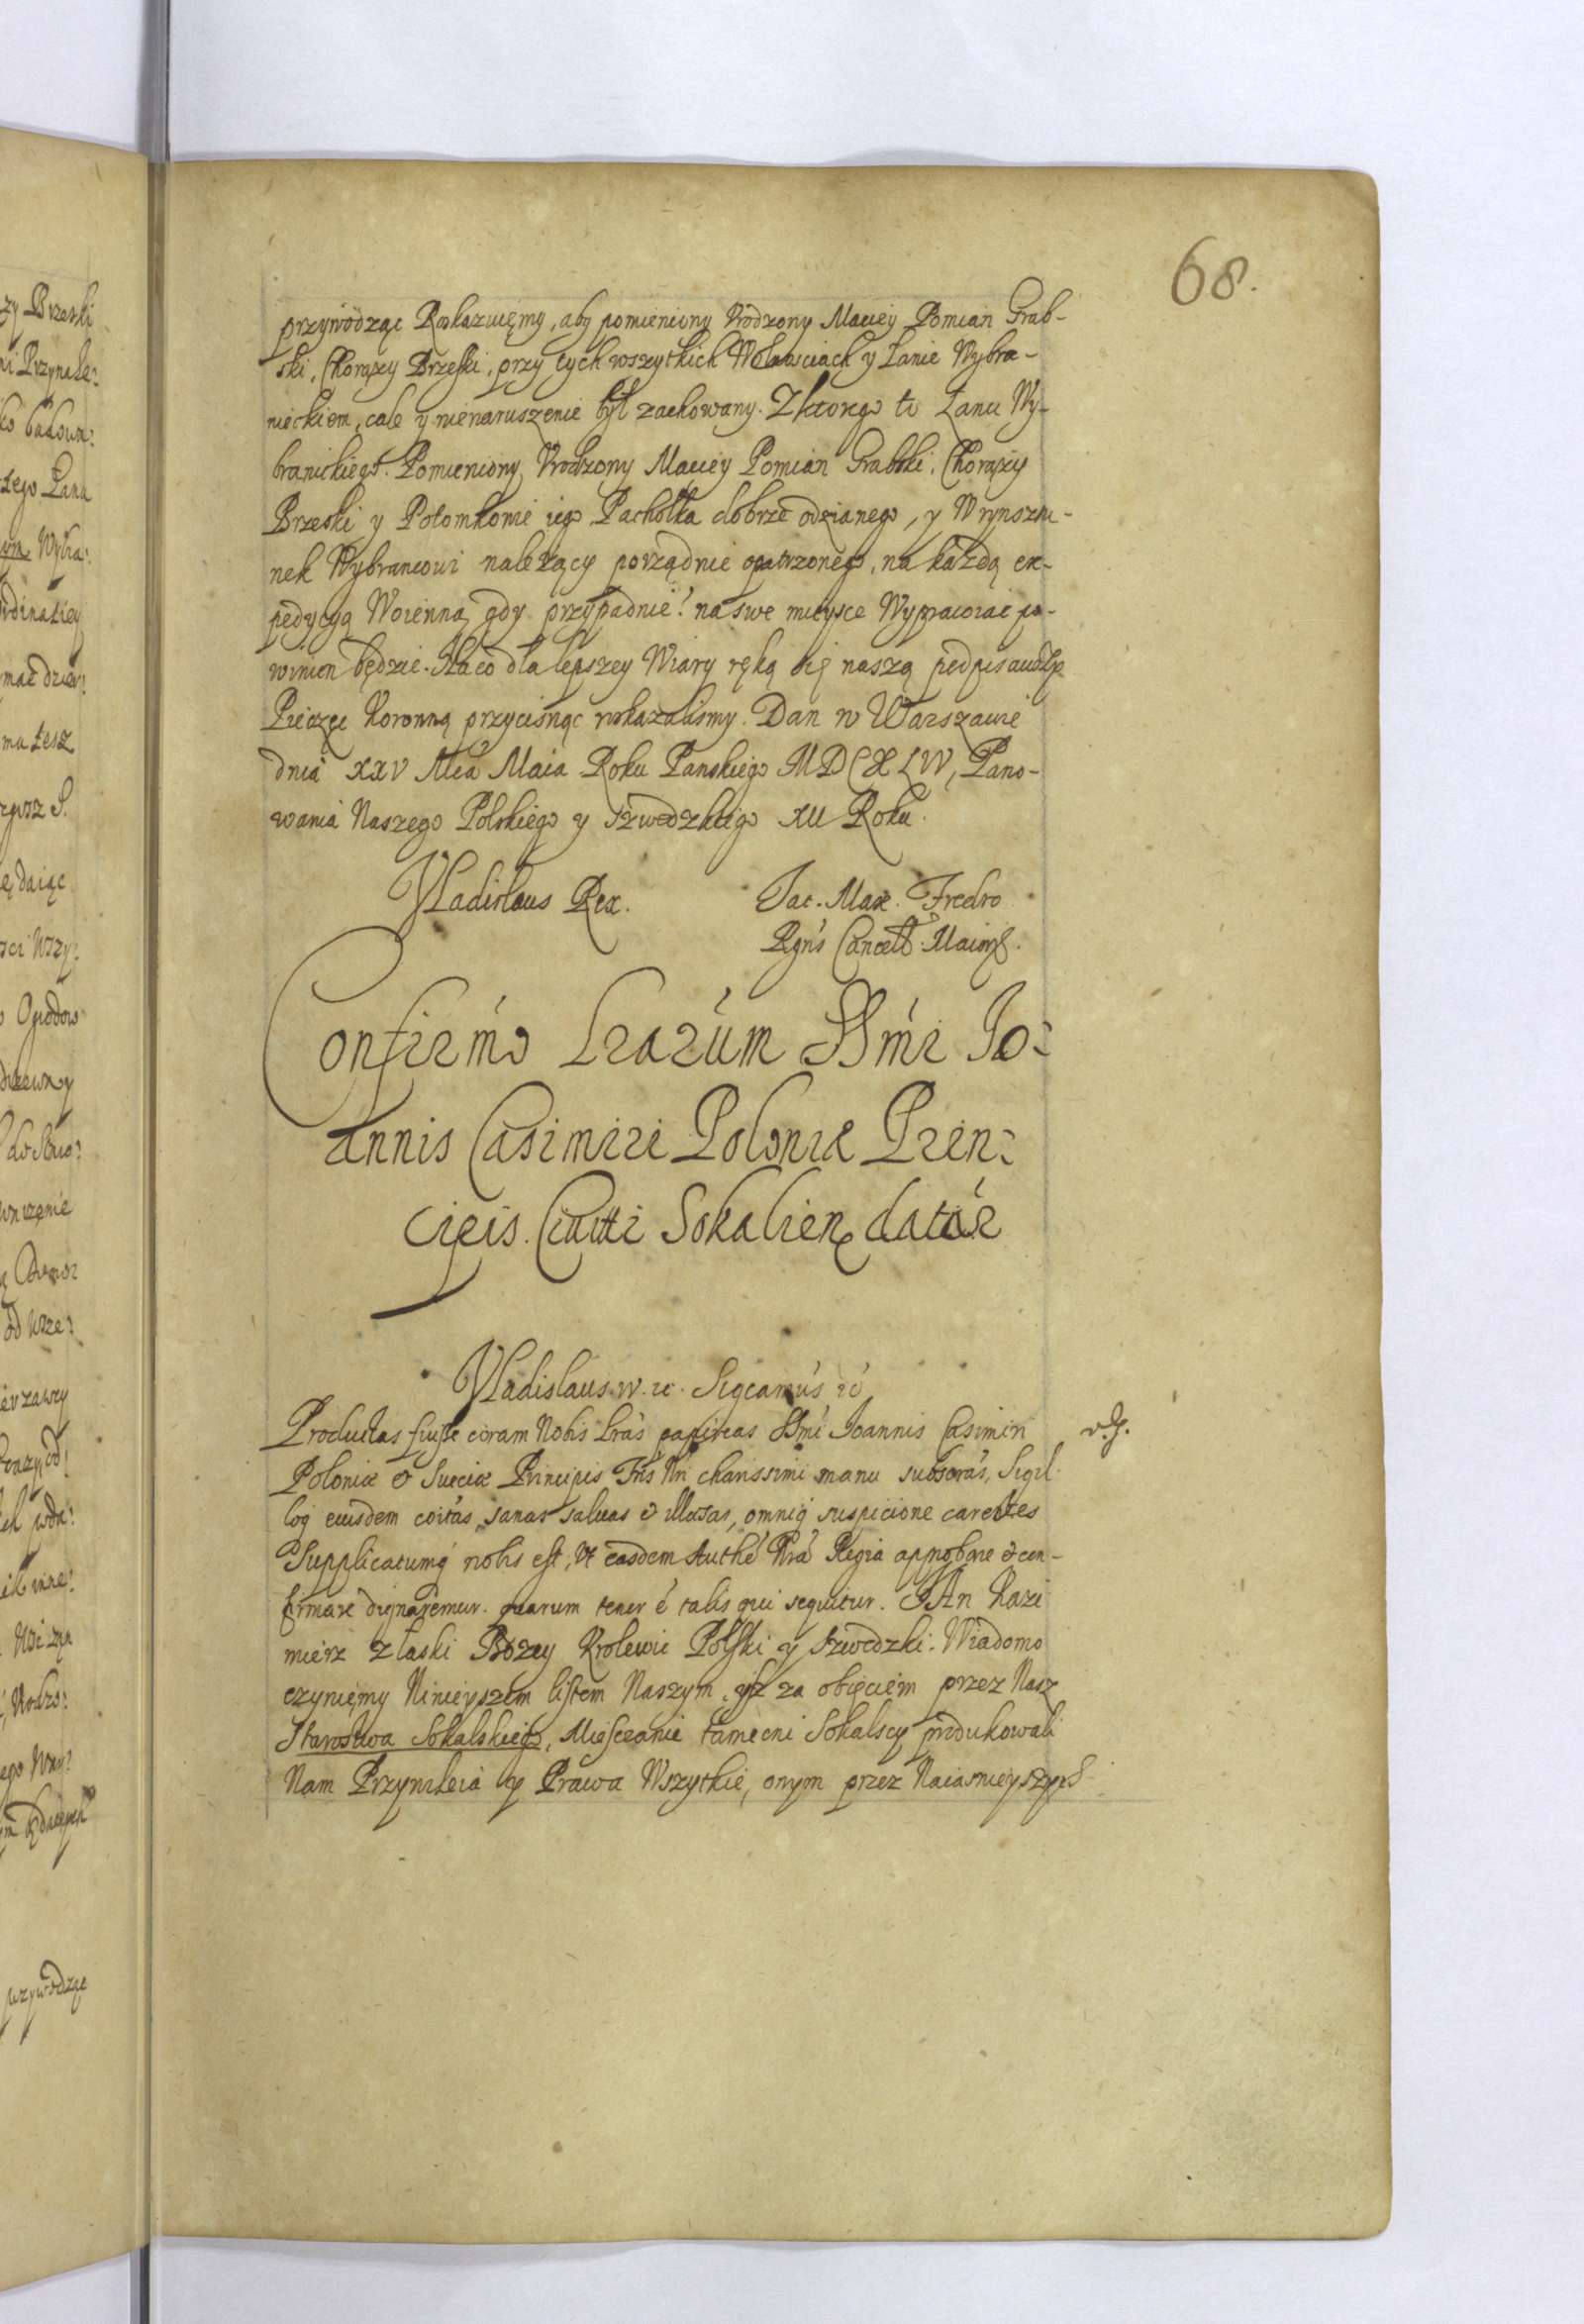 68.
przywodząc Roskazuięmy, aby pomieniony Vrodzony Maciey Pomian Grab-
ski, Chorązy Brzeski, przy tych wszytkich Wolnosciach y Łanie Wybra-
nieckiem, cale y nienaruszenie był zachowany. Z ktorego to Łanu Wy-
branickiego. Pomieniony Vrodzony Maciey Pomian Grabski, Chorązy
Brzeski y Potomkowie iego Pachołka dobrze odzianego, y Wrynsztu-
nek Wybrancowi nalezący porządnie opatrzonego, na kazdą ex-
pedycyą Woienną gdy przypadnie: na swe mieysce Wyprawiac po-
winien będzie. Na co dla lepszey Wiary ręką się naszą podpisawszy
Pieczęc Koronną przycisnąc roskazalismy. Dan w Warszawie
dnia XXV Mca Maia Roku Panskiego MDCXLIV, Pano-
wania Naszego Polskiego y Szwedzkiego XII Roku.
Vladislaus Rex. Jac. Max. Fredro
Regni Cancell. Maioris.
Confirmo Lrarum SSmi Jo:
annis Casimiri Poloniæ Prin:
cipis. Ciuitti Sokalien datar
Vladislaus IV. etc. Sigcamus etc
Productas fuisse coram Nobis Lras papireas SSmi Joannis Casimiri v. g.
Poloniæ & Sueciæ Principis Fris Nri charissimi manu subscras, Sigil-
loq eiusdem coitas, sanas saluas & illæsas, omniq suspicione carentes
Supplicatumq nobis est, vt easdem Authe Nra Regia approbare & con-
firmare dignaremur. quarum tenor e talis qui sequitur. JAn Kazi
mierz z Łaski Bozey Krolewic Polski y Szwedzki. Wiadomo
czyniemy Ninieyszem listem Naszym, isz za obięciem przez Nasz
Starostwa Sokalskiego, Miesczanie tameczni Sokalscy produkowali
Nam Przywileia y Prawa Wszytkie, onym przez Naiasnieyszych